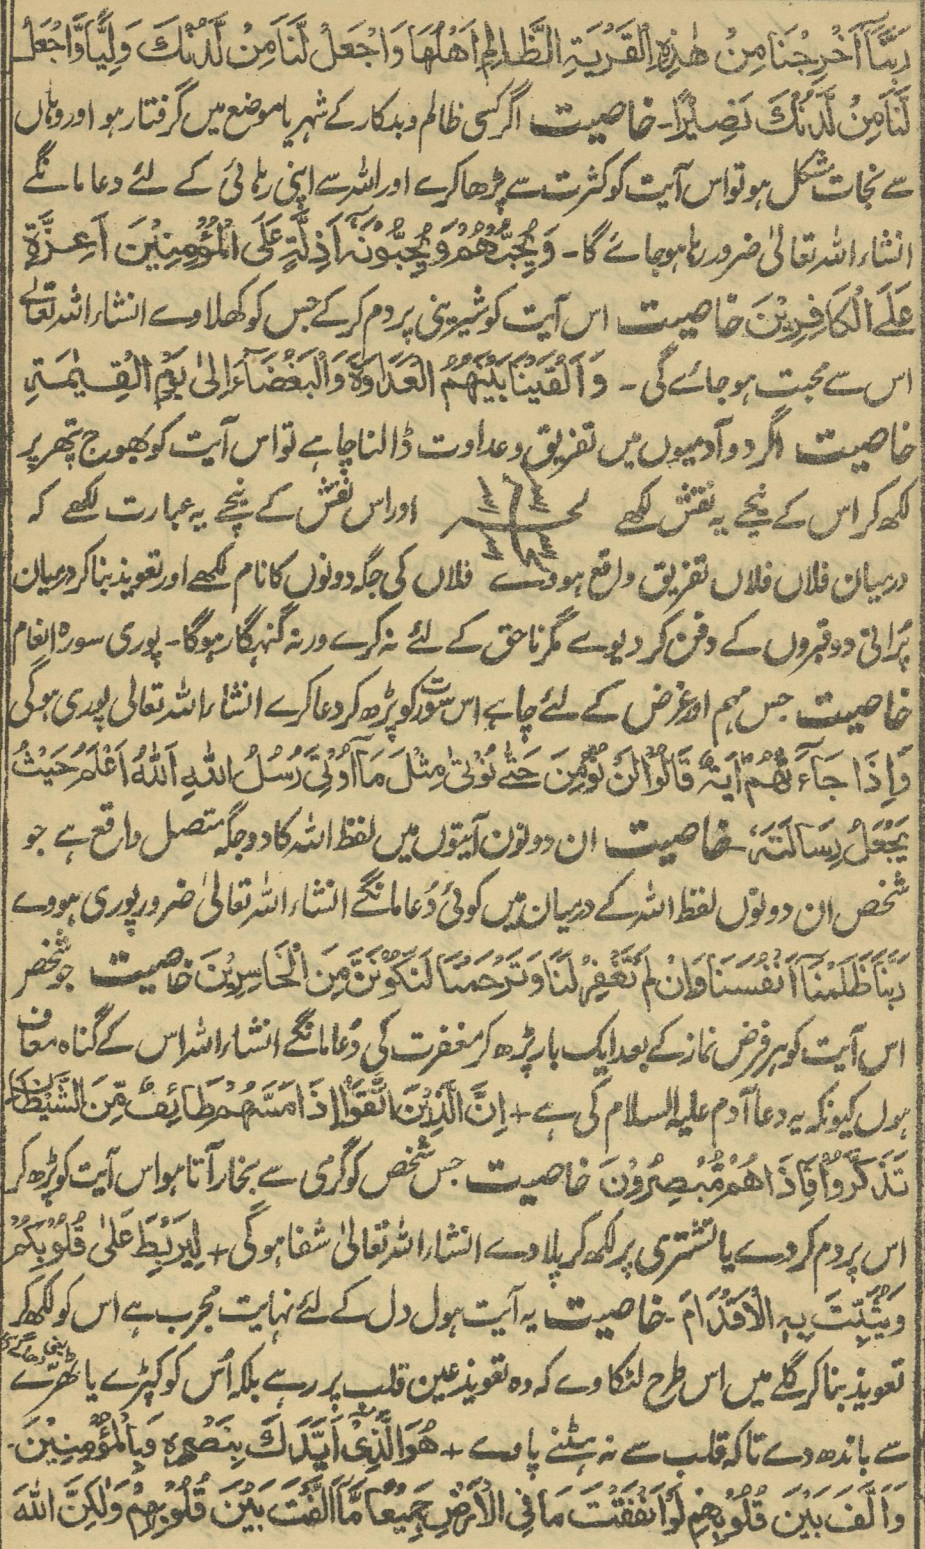 رَبَّنَآ اَخْرِجْنَا مِنْ هٰذِهِ الْقَرْيَةِ الظَّالِمِ اَهْلُهَا وَاجْعَلْ لَّنَا مِنْ لَّدُنْكَ وَلِيًّا وَّاجْعَلْ
لَّنَا مِنْ لَّدُنْكَ نَصِيْرًا۔ خاصیت اگر کسی ظالم و بدکار کے شہر یا موضع میں گرفتار ہو اور وہاں
سے نجات مشکل ہو تو اس آیت کو کثرت سے پڑھا کرے اور اللہ سے اپنی رہائی کے لئے دعا مانگے
انشاء اللہ تعالیٰ ضرور رہا ہو جائے گا۔ وَيُحِبُّهُمْ وَيُحِبُّوْنَهٗ اَذِلَّةٍ عَلَى الْمُؤْمِنِيْنَ اَعِزَّةٍ
عَلَى الْكَافِرِيْنَ خاصیت اس آیت کو شیرینی پر دم کر کے جس کو کھلاوے انشاء اللہ تعالےٰ
اس سے محبت ہو جائے گی ۔ وَاَلْقَيْنَا بَيْنَهُمُ الْعَدَاوَةَ وَالْبَغْضَآءَ اِلىٰ يَوْمِ الْقِيٰمَةِ
خاصیت اگر دو آدمیوں میں تفریق و عداوت ڈالنا چاہے تو اس آیت کو بھوج پتھر پر
لکھ کر اس کے نیچے یہ نقش لکھے اور اس نقش کے نیچے یہ عبارت لکھے کہ
درمیان فلاں فلاں تفریق واقع ہووے فلاں کی جگہ دونوں کا نام لکھے اور تعویذ بنا کر درمیان
پُرانی دو قبروں کے دفن کر دیوے مگر ناحق کے لئے نہ کرے ورنہ گنہگار ہوگا۔ پوری سورہ انعام
خاصیت جس مہم اور غرض کے لئے چاہے اس سورت کو پڑھ کر دعا کرے انشاء اللہ تعالیٰ پوری ہوگی
وَاِذَا جَآءَتْهُمْ اٰيَةٌ قَالُوْا لَنْ نُّؤْمِنَ حَتّٰى نُؤْتٰى مِثْلَ مَآ اُوْتِىَ رُسُلُ اللهِ اَللهُ اَعْلَمُ حَيْثُ
يَجْعَلُ رِسَالَتَهٗ۔ خاصیت ان دونوں آیتوں میں لفظ اللہ کا دو جگہ متصل واقع ہے جو
شخص ان دونوں لفظ اللہ کے درمیان میں کوئی دُعا مانگے انشاء اللہ تعالیٰ ضرور پوری ہووے
رَبَّنَا ظَلَمْنَآ اَنْفُسَنَا وَاِنْ لَّمْ تَغْفِرْ لَنَا وَتَرْحَمْنَا لَنَكُوْنَنَّ مِنَ الْخَاسِرِيْنَ خاصیت جو شخص
اس آیت کو ہر فرض نماز کے بعد ایک بار پڑھ کر مغفرت کی دُعا مانگے انشاء اللہ اس کے گناہ معاف
ہوں کیونکہ یہ دعا آدم علیہ السلام کی ہے + اِنَّ الَّذِيْنَ اتَّقَوْا اِذَا مَسَّهُمْ طَائِفٌ مِّنَ الشَّيْطَانِ
تَذَكَّرُوْا فَاِذَا هُمْ مُّبْصِرُوْنَ خاصیت جس شخص کو گرمی سے بخار آتا ہو اس آیت کو پڑھ کر
اس پر دم کر دے یا تشتری پر لکھ کر پلا دے انشاء اللہ تعالیٰ شفا ہوگی + لِيَرْبِطَ عَلىٰ قُلُوْبِكُمْ
وَيُثَبِّتَ بِهِ الْاَقْدَامَ۔ خاصیت یہ آیت ہول دل کے لئے نہایت مجرب ہے اس کو لکھ کر
تعویذ بنا کر گلے میں اس طرح لٹکاوے کہ وہ تعویذ عین قلب پر رہے بلکہ اُس کو کپڑے یا
سے باندھ دے تاکہ قلب سے نہ ہٹنے پاوے + هُوَ الَّذِىْ اَيَّدَكَ بِنَصْرِهٖ وَبِالْمُؤْمِنِيْنَ۔
وَاَلَّفَ بَيْنَ قُلُوْبِهِمْ لَوْ اَنْفَقْتَ مَا فِى الْاَرْضِ جَمِيْعًا مَّآ اَلَّفْتَ بَيْنَ قُلُوْبِهِمْ وَلٰكِنَّ اللهَ